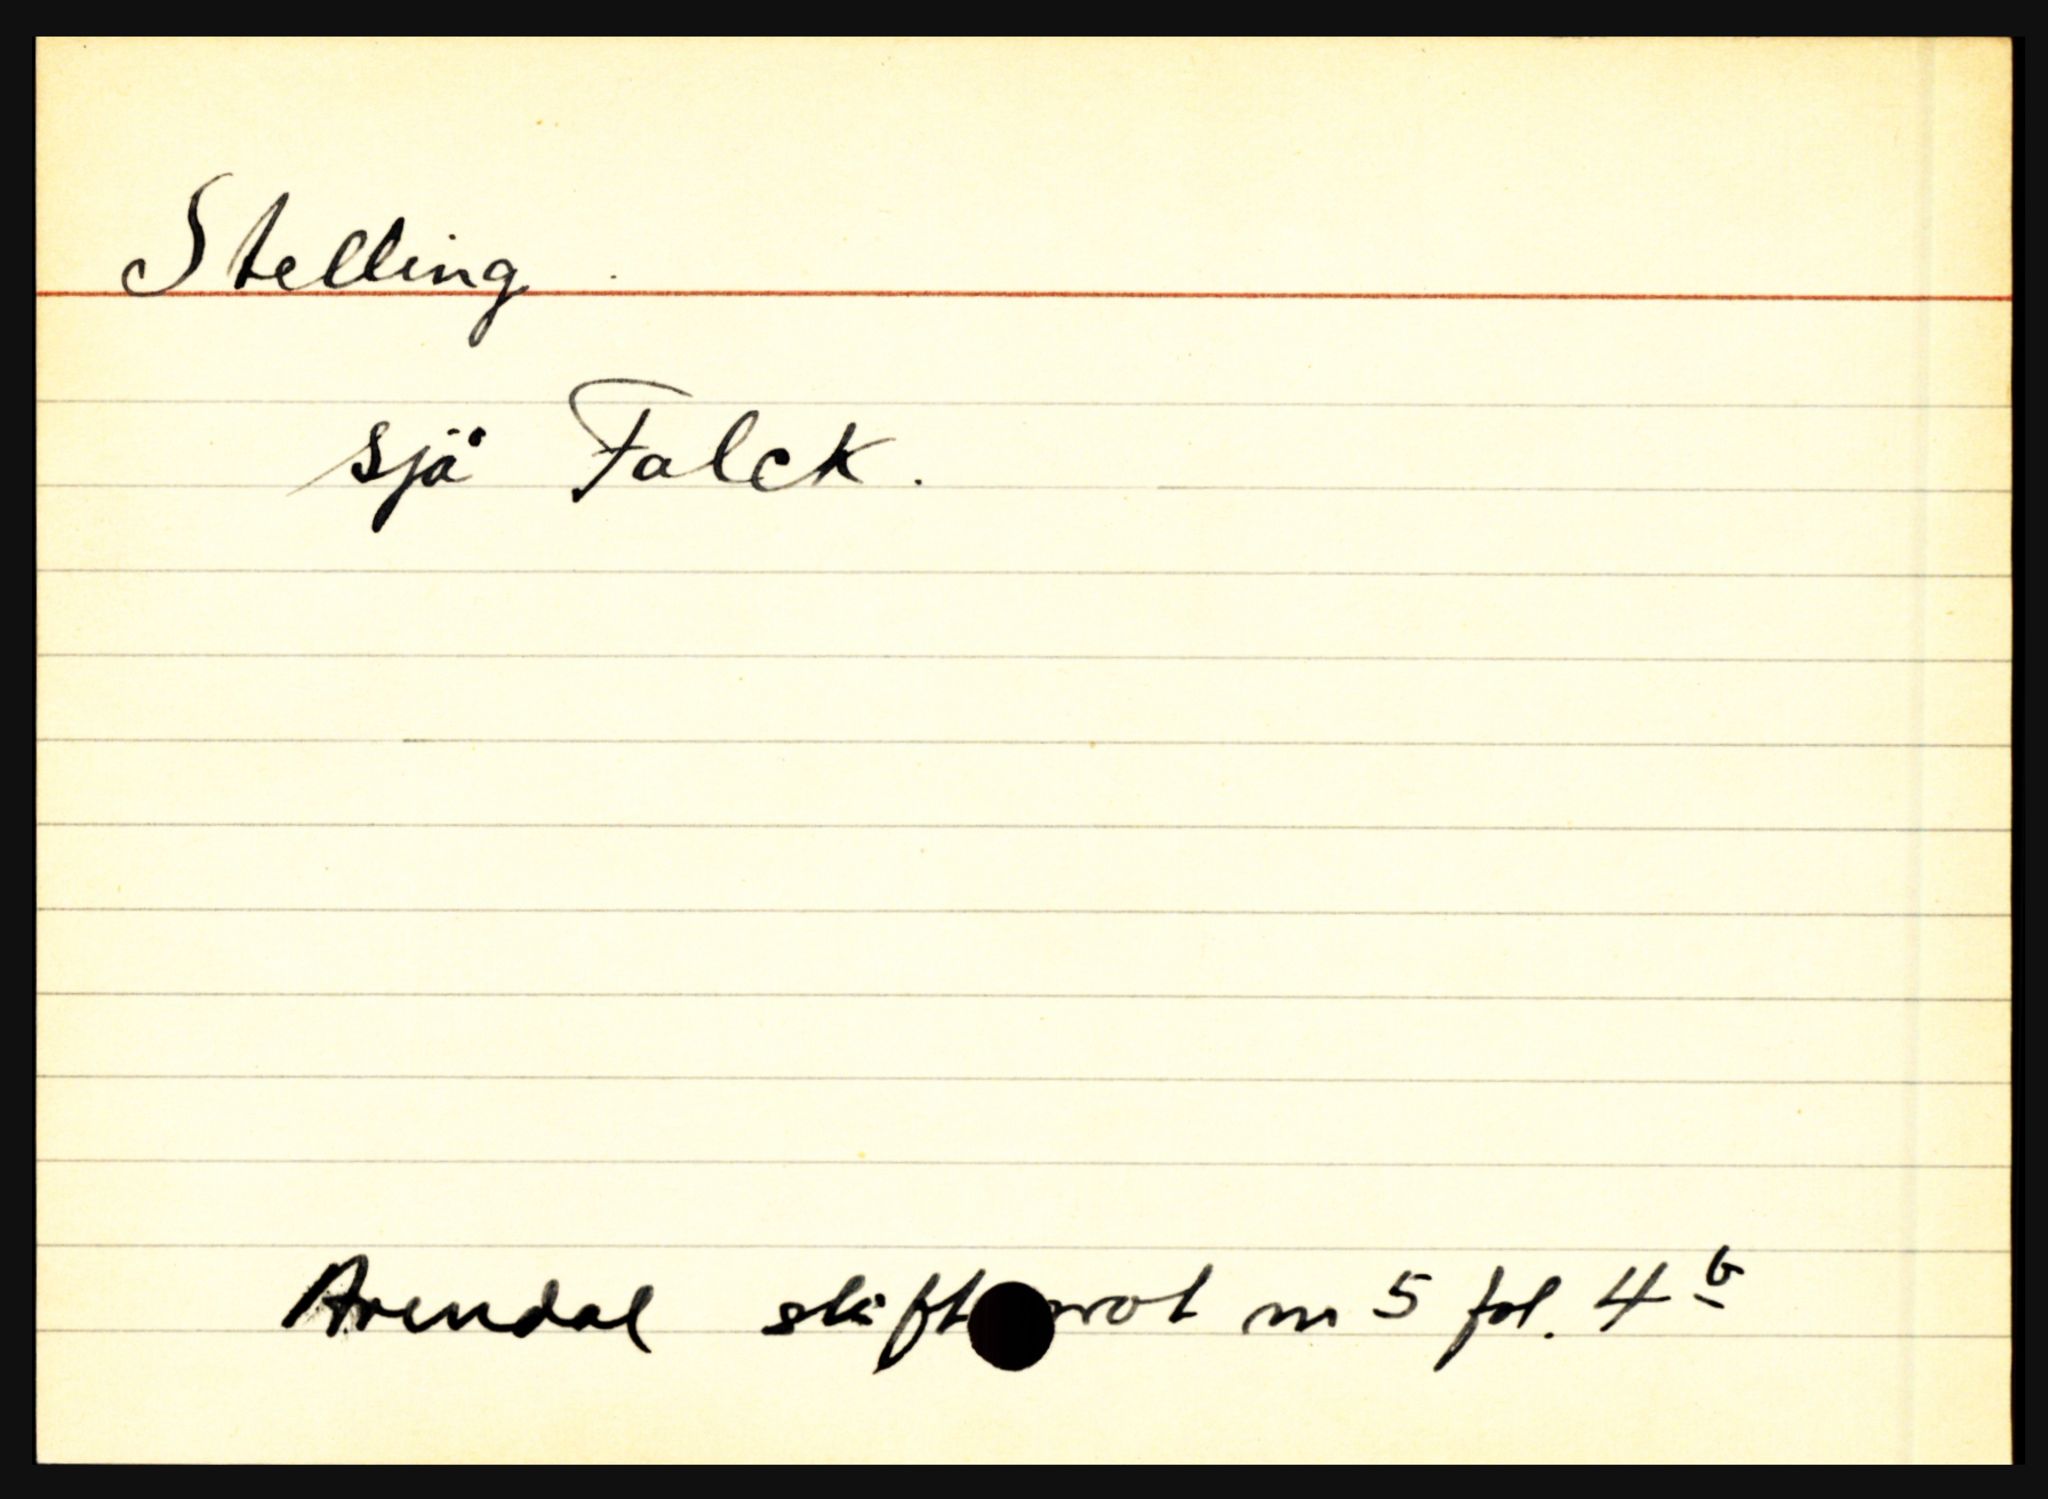 Stelling
sjå Falck.
Arendal skifteprot nr 5 fol. 4 b